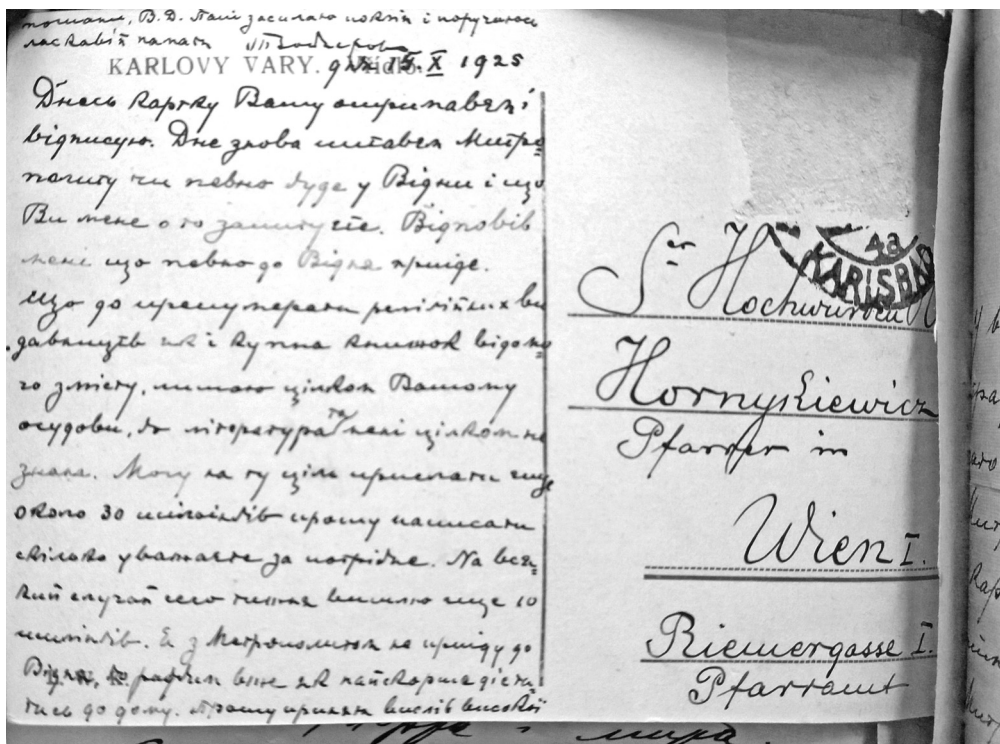 пошани, В.Д. Пані засилаю поклін і поручаюся
ласкавій памяти
KARLOVY VARY. дня 15. X 1925
Днесь картку Вашу отримавем і
відписую. Дне знова питавем Митро=
политу чи певно буде у Відни і що
Ви мене о то запитуєте. Відповів
мені що певно до Відня приїде.
Що до пренумерати релігійних ви
давництв як і купна книжок відпо
го змісту, лишаю цілком Вашому
осудови, бо література та мені цілком не
знана. Можу на ту ціль прислати еще
около 30 шилінґів прошу написати
скілько уважаєте за потрібне. На вся=
кий случай сего тижня вишлю еще 10
шилінґів. Я з Митрополитом не приїду до
Відня, бо радбим вже як найскорше діста=
тись до дому. Прошу приняти вислів високої
Sr Hochwürden
Hornykiewicz
Pfarrer in
Wien I.
Riemergasse I.
Pfarramt
4a
KARLSBAD